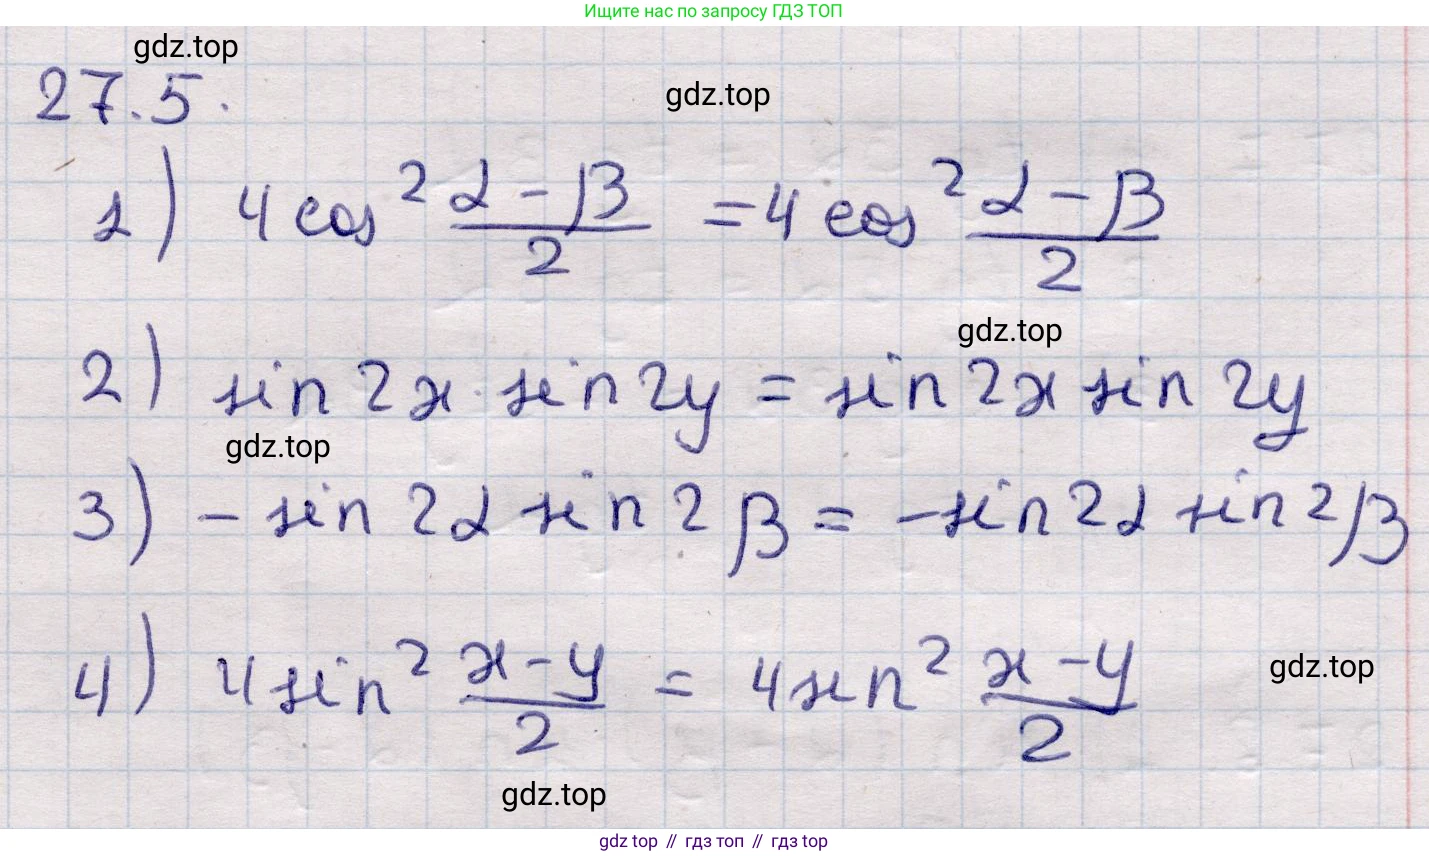 Ищите нас по запросу ГДЗ ТОП
gdz.top
27.5.
gdz.top
1) 4 cos² (α-β)/2 = 4 cos² (α-β)/2
gdz.top
2) sin 2x · sin 2y = sin 2x sin 2y
gdz.top
3) - sin 2α sin 2β = - sin 2α sin 2β
4) 4 sin² (x-y)/2 = 4 sin² (x-y)/2
gdz.top
gdz.top
gdz top // гдз топ // гдз top